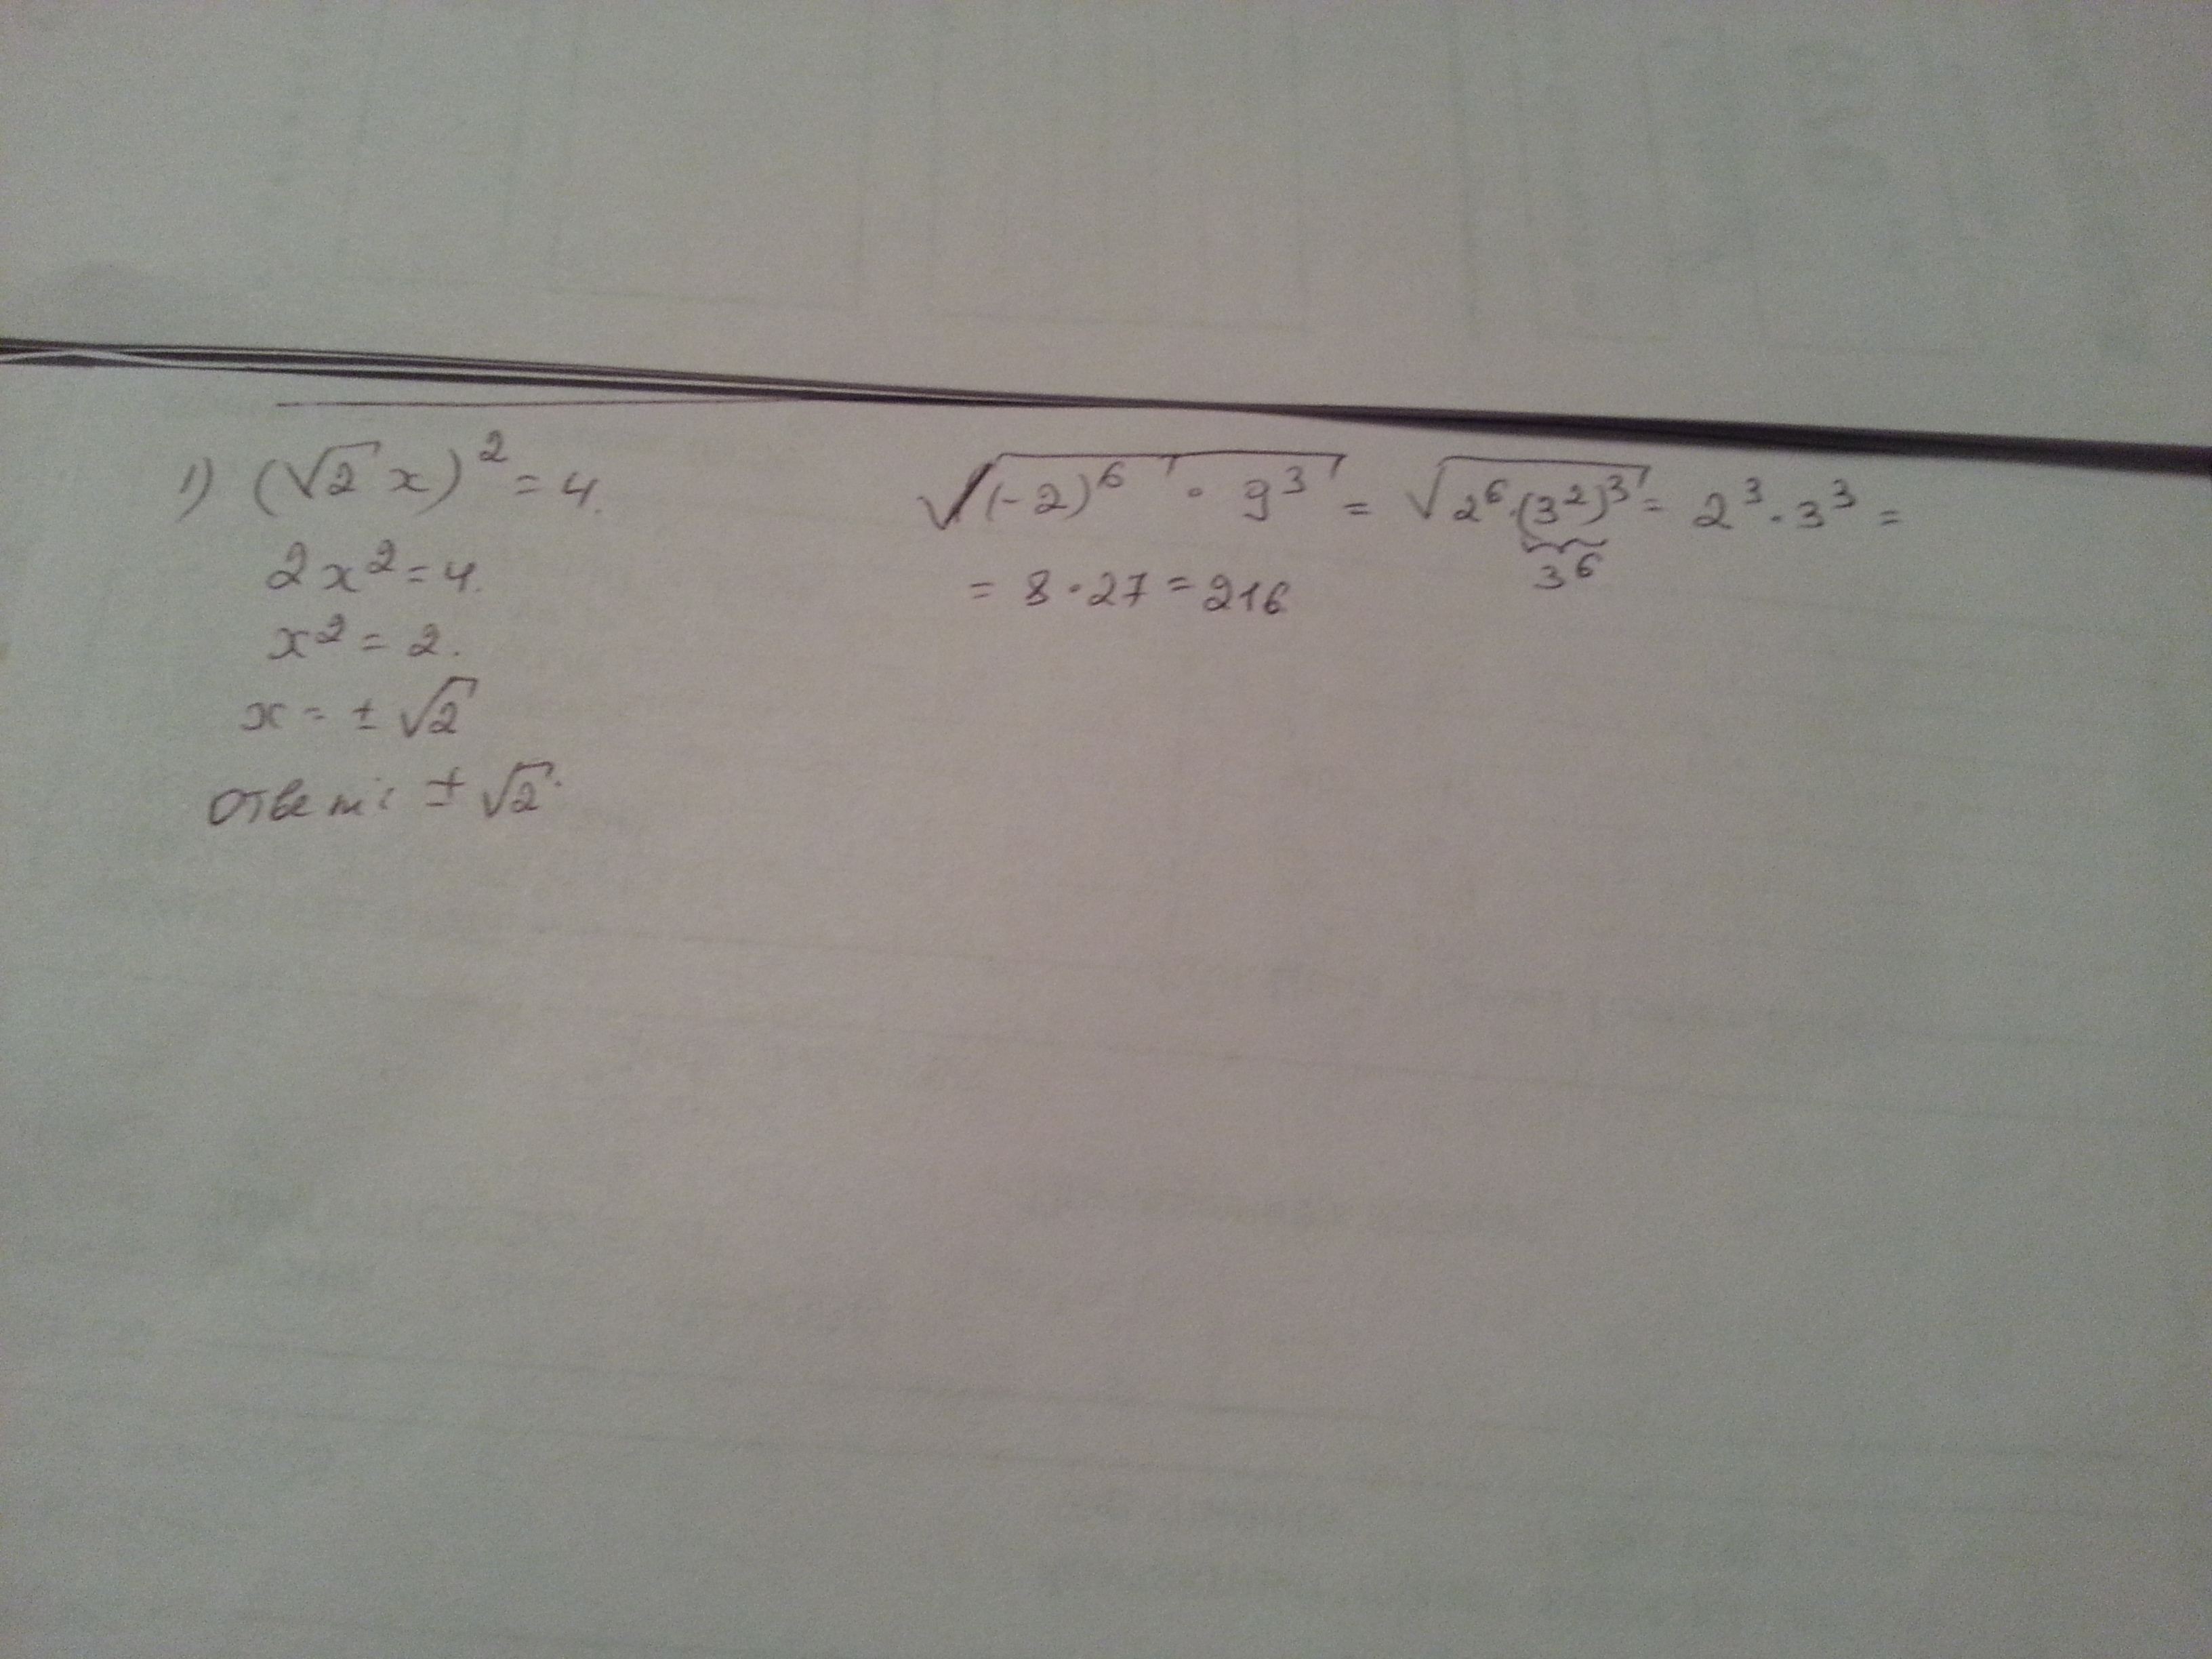 1) (√2 x)² = 4.
2x² = 4.
x² = 2.
x = ± √2
Ответ: ± √2.
√((-2)⁶ · 9³) = √(2⁶ · (3²)³) = 2³ · 3³ =
3⁶
= 8 · 27 = 216